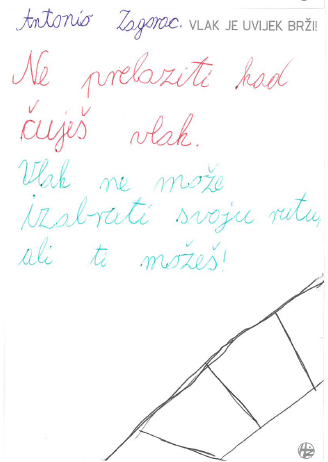 Antonio Zagorac. VLAK JE UVIJEK BRŽI!
Ne prelaziti kad
čuješ vlak.
Vlak ne može
izabrati svoju rutu,
ali ti možeš!
HŽ